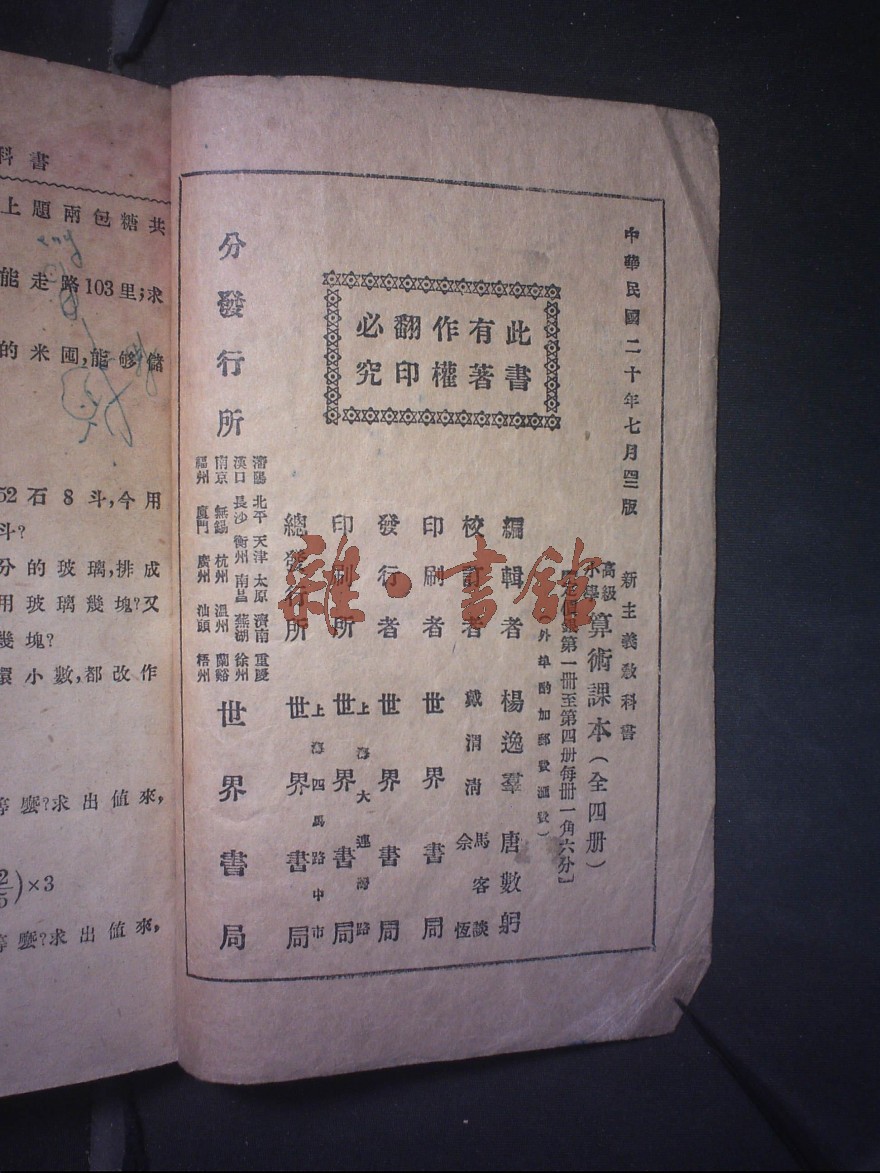 中華民國二十年七月四三版
新主義教科書
高級
小學
算術課本(全四册)
【定價銀第一冊至第四册每册一角六分】
(外埠酌加郵費滙費)
此書
有著
作權
翻印
必究
編輯者 楊逸羣 唐數躬
校訂者 戴渭清 馬客談 佘恆
印刷者 世界書局
發行者 世界書局
印刷所 上海大連灣路 世界書局
總發行所 上海四馬路中市 世界書局
分發行所
瀋陽 北平 天津 太原 濟南 重慶
漢口 長沙 衡州 南昌 蕪湖 徐州
南京 無錫 杭州 温州 蘭谿
福州 廈門 廣州 汕頭 梧州
世界書局
雜·書館
科書
上題兩包糖共
能走路103里;求
的米囤,能够儲
52石8斗,今用
斗?
分的玻璃,排成
用玻璃幾塊?又
幾塊?
環小數,都改作
等麼?求出値來,
2/5)×3
等麼?求出値來,